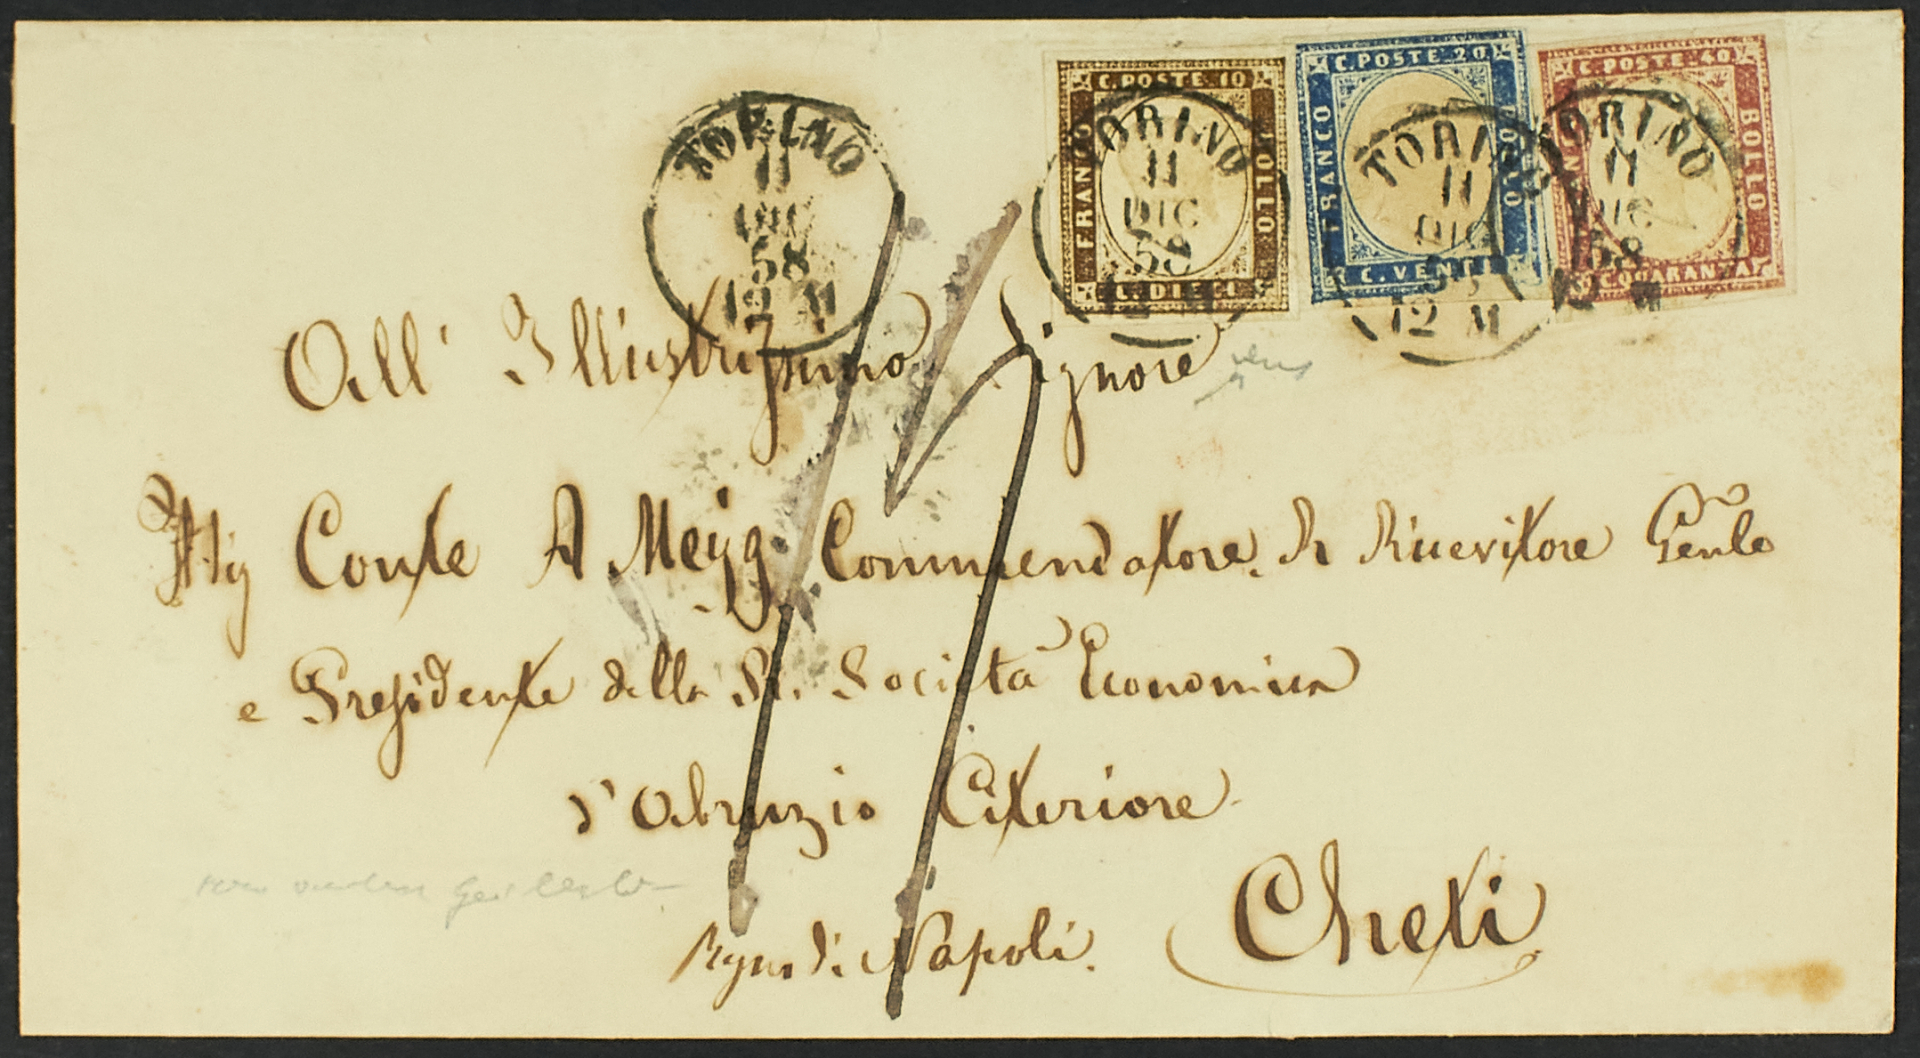 C. POSTE 10
FRANCO
BOLLO
C. DIECI
C. POSTE 20
FRANCO
BOLLO
C. VENTI
C. POSTE 40
FRANCO
BOLLO
C. QUARANTA
TORINO
11
DIC
58
12 M
TORINO
11
DIC
58
12 M
TORINO
11
DIC
58
12 M
TORINO
11
DIC
58
12 M
All' Illustrissimo Signore
Conte A. Commendatore R Ricevitore Genle
e Presidente della R. Società Economica
d'Abruzio Citeriore
Regno di Napoli. Chieti